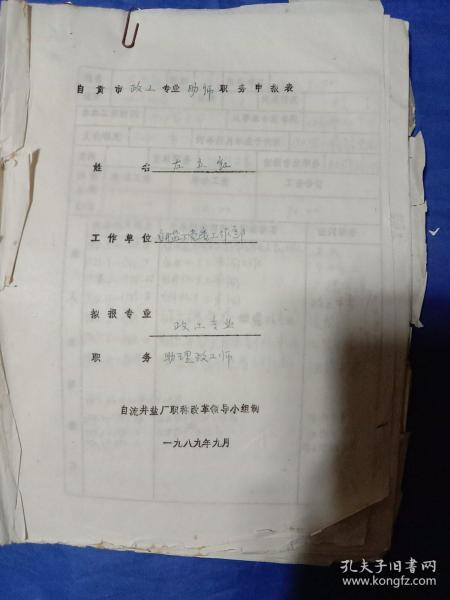 自贡市政工专业助师职务申报表
姓名 左立红
工作单位 自井盐厂党委工作部
拟报专业 政工专业
职务 助理政工师
自流井盐厂职称改革领导小组制
一九八九年九月
孔夫子旧书网
www.kongfz.com